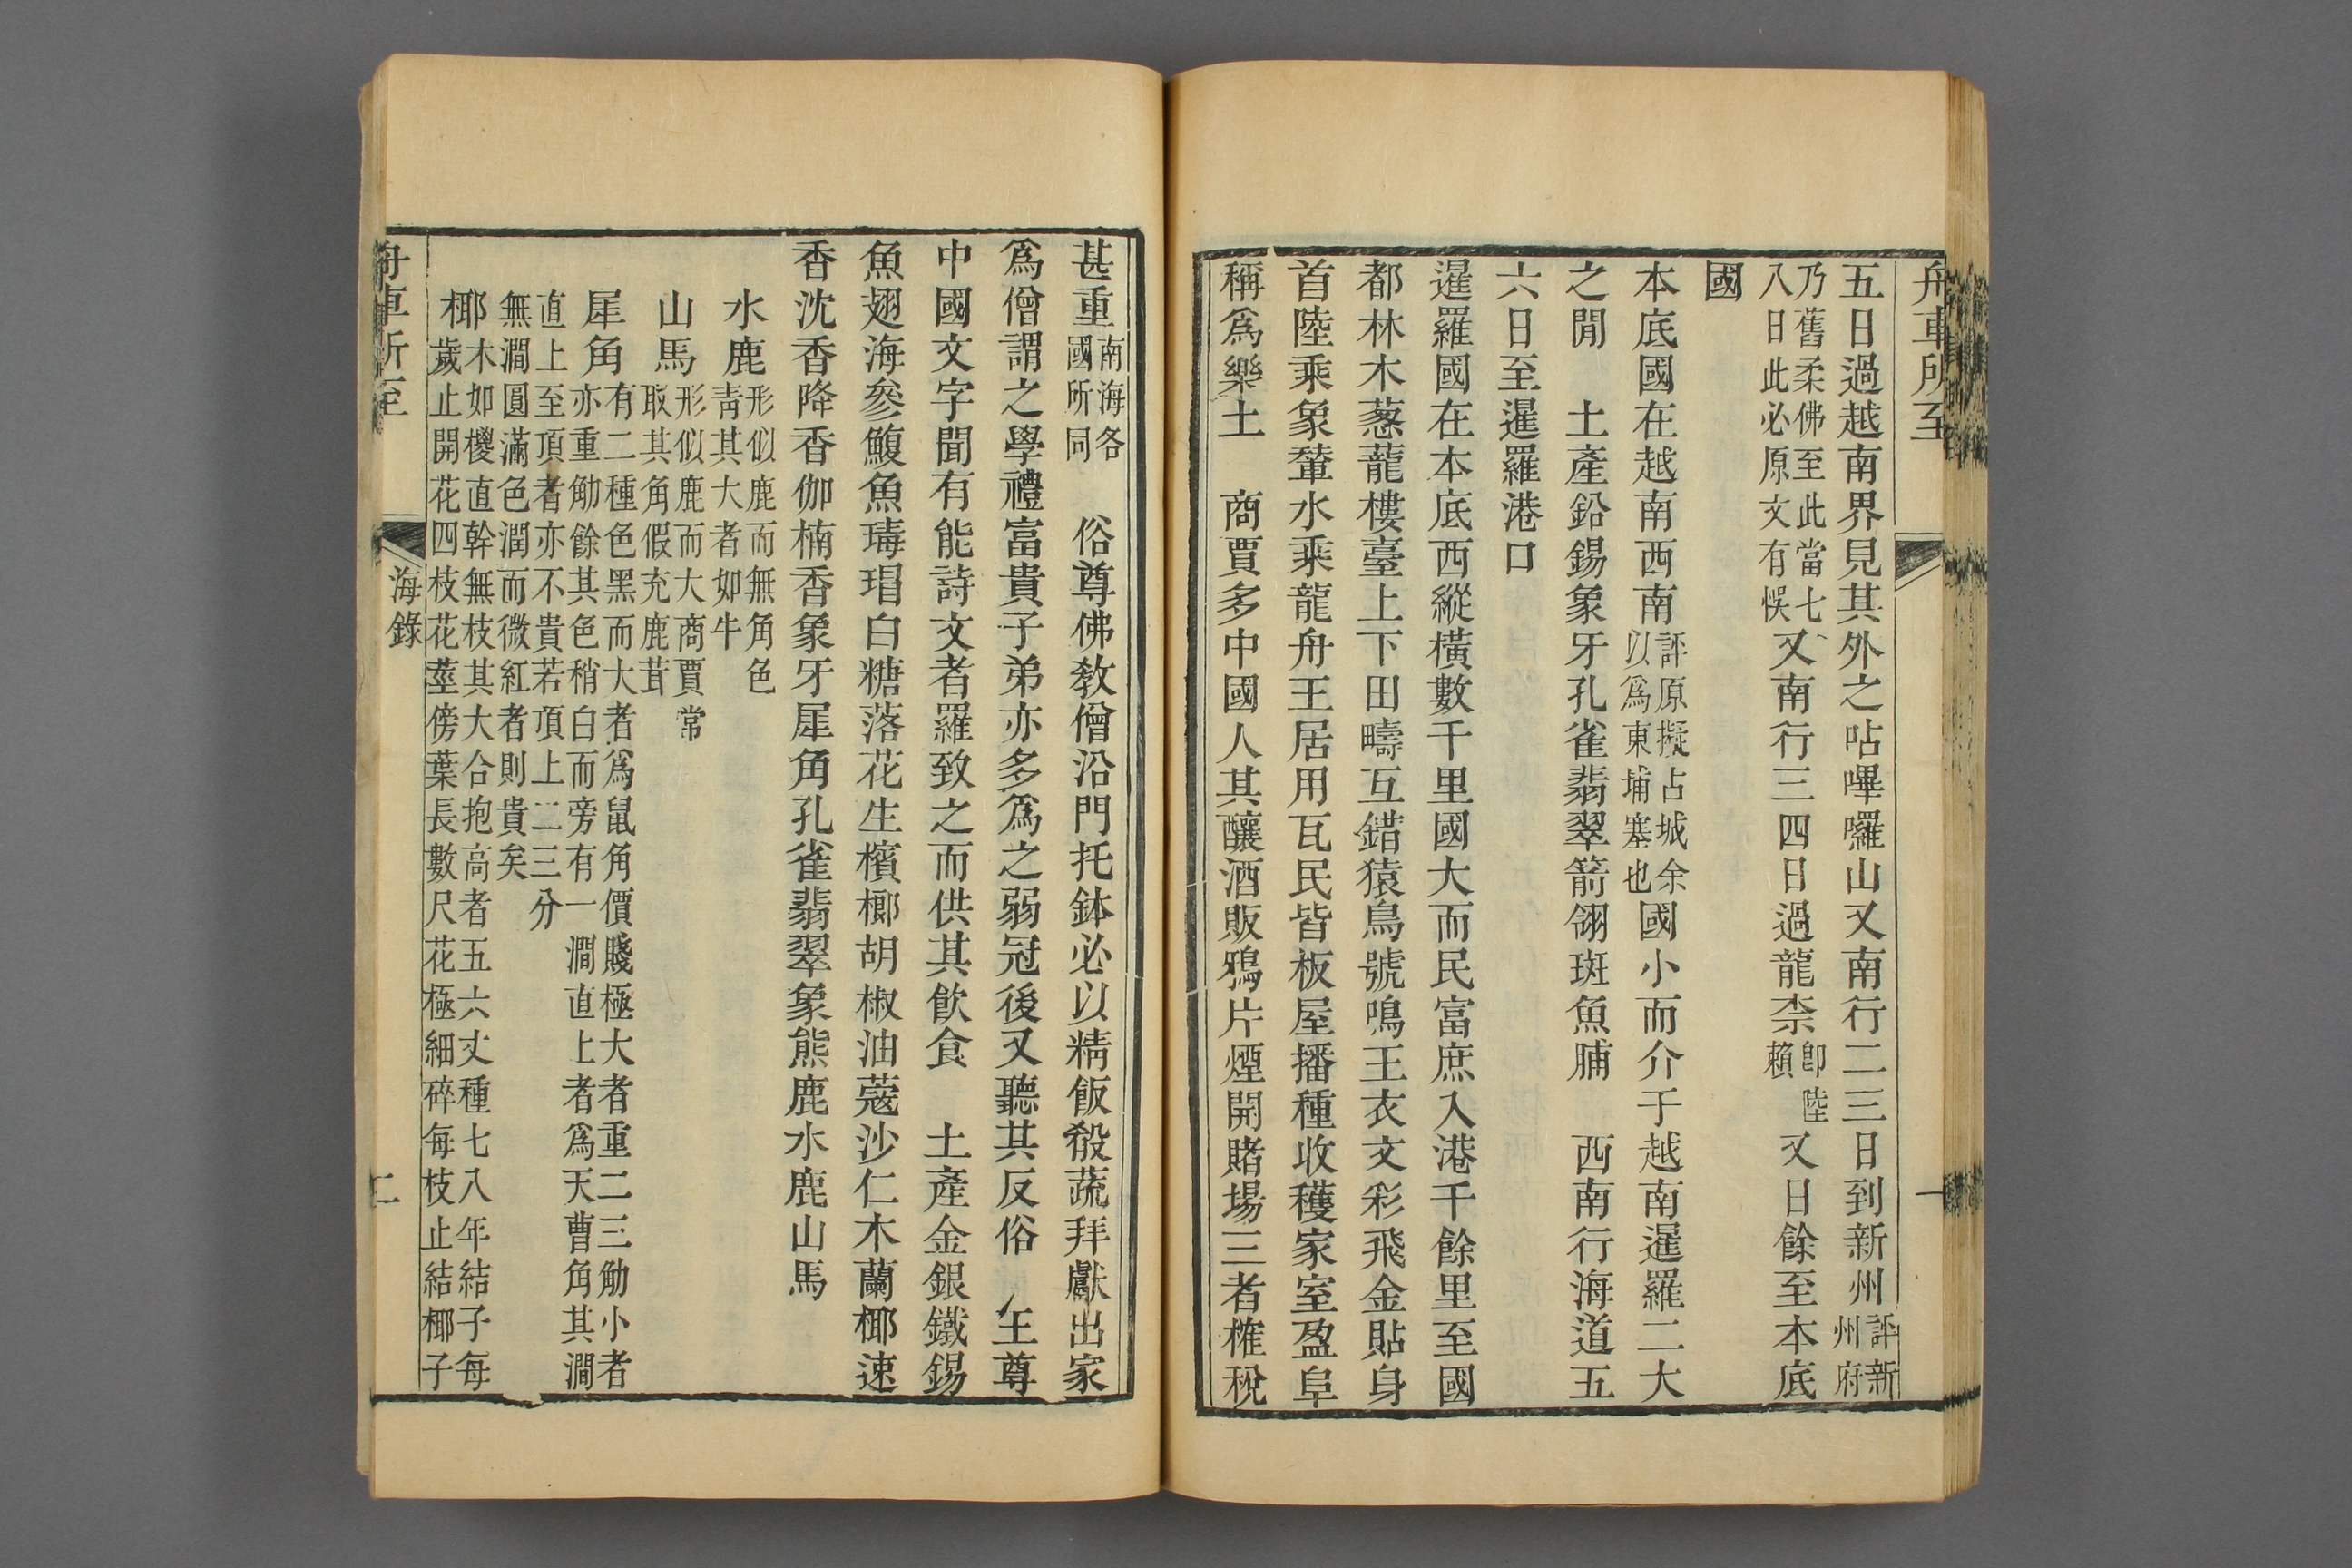 舟車所至
一
五日過越南界見其外之呫嗶囉山又南行二三日到新州評新州府
乃舊柔佛至此當七八日此必原文有悞又南行三四日過龍柰卽陸賴又日餘至本底
國
本底國在越南西南評原擬占城余以爲東埔塞也國小而介于越南暹羅二大
之閒　土產鉛錫象牙孔雀翡翠箭翎斑魚脯　西南行海道五
六日至暹羅港口
暹羅國在本底西縱橫數千里國大而民富庶入港千餘里至國
都林木蔥蘢樓臺上下田疇互錯猿鳥號鳴王衣文彩飛金貼身
首陸乘象輦水乘龍舟王居用瓦民皆板屋播種收穫家室盈阜
稱爲樂土　商賈多中國人其釀酒販鴉片煙開賭場三者榷稅
甚重南海各國所同　俗尊佛教僧沿門托鉢必以精飯殽蔬拜獻出家
爲僧謂之學禮富貴子弟亦多爲之弱冠後又聽其反俗　王尊
中國文字聞有能詩文者羅致之而供其飮食　土產金銀鐵錫
魚翅海參鰒魚瑇瑁白糖落花生檳榔胡椒油蔻沙仁木蘭椰速
香沈香降香伽楠香象牙犀角孔雀翡翠象熊鹿水鹿山馬
水鹿形似鹿而無角色靑其大者如牛
山馬形似鹿而大商賈常取其角假充鹿茸
犀角有二種色黑而大者爲鼠角價賤極大者重二三觔小者亦重觔餘其色稍白而旁有一澗直上者爲天曹角其澗
直上至頂者亦不貴若頂上二三分無澗圓滿色潤而微紅者則貴矣
椰木如椶直幹無枝其大合抱高者五六丈種七八年結子每歲止開花四枝花莖傍葉長數尺花極細碎每枝止結椰子
舟車所至
海錄
二